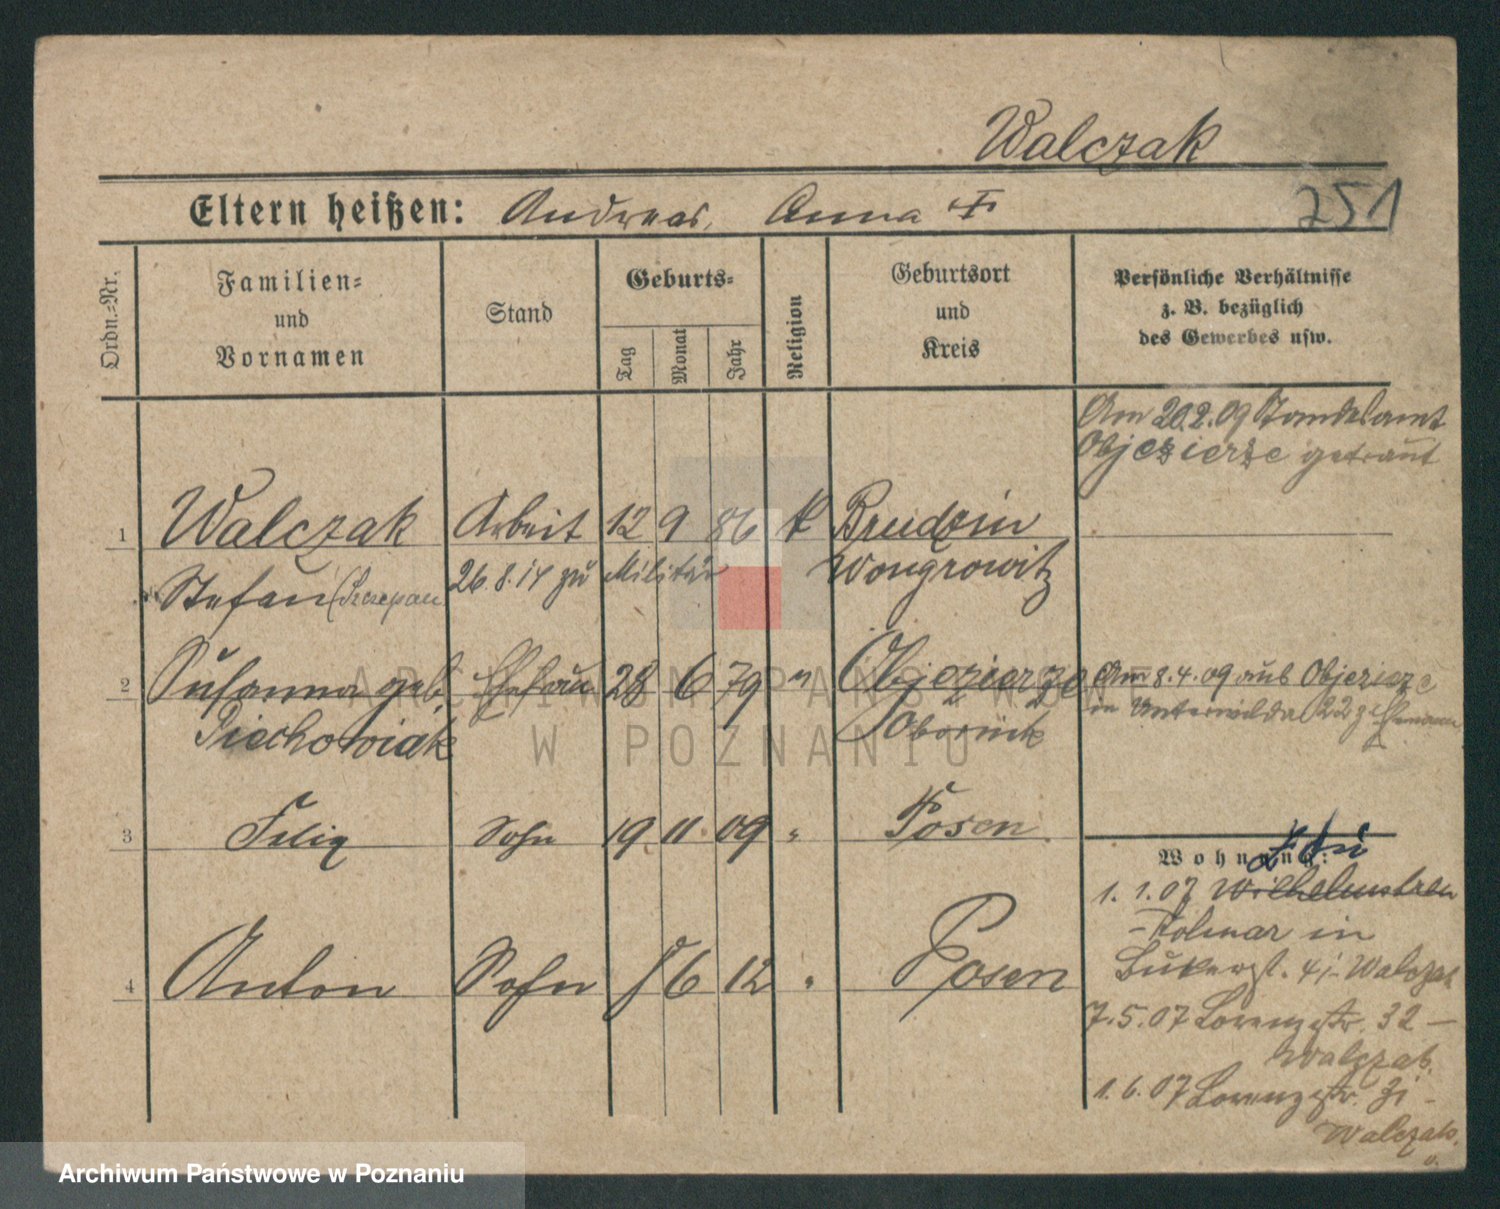 Walczak
Eltern heißen: Andreas, Anna
251
Ordn.-Nr.
Familien- und Vornamen
Stand
Geburts-
Tag
Monat
Jahr
Religion
Geburtsort und Kreis
Persönliche Verhältnisse
z. B. bezüglich
des Gewerbes usw.
Am 20.2.09 Standesamt
Objezierze getraut
1 Walczak Arbeit 12 9 86 k Brudzin
Stefan (Szczepan 26.8.14 zu Militär Wongrowitz
2 Susanna geb. Ehefrau 28 6 79 " Objezierze Am 8.4.09 aus Objezierze
Piechowiak Obornik in Unterwilda 22 z. Ehemann
3 Felix Sohn 19 11. 09 " Posen
Wohnung:
1.1.07
Kolmar in
4 i Walczak
4 Anton Sohn 8 6 12 " Posen
7.5.07 Lorenzstr. 32 –
Walczak.
1.6.07 Lorenzstr. 31 -
Walczak.
ARCHIWUM PAŃSTWOWE
W POZNANIU
Archiwum Państwowe w Poznaniu